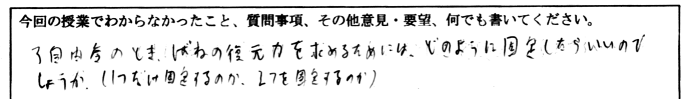 今回の授業でわからなかったこと、質問事項、その他意見・要望、何でも書いてください。
3自由度のとき、ばねの復元力を求めるためには、どのように固定したらいいので
しょうか。(1つだけ固定するのか、2つを固定するのか)